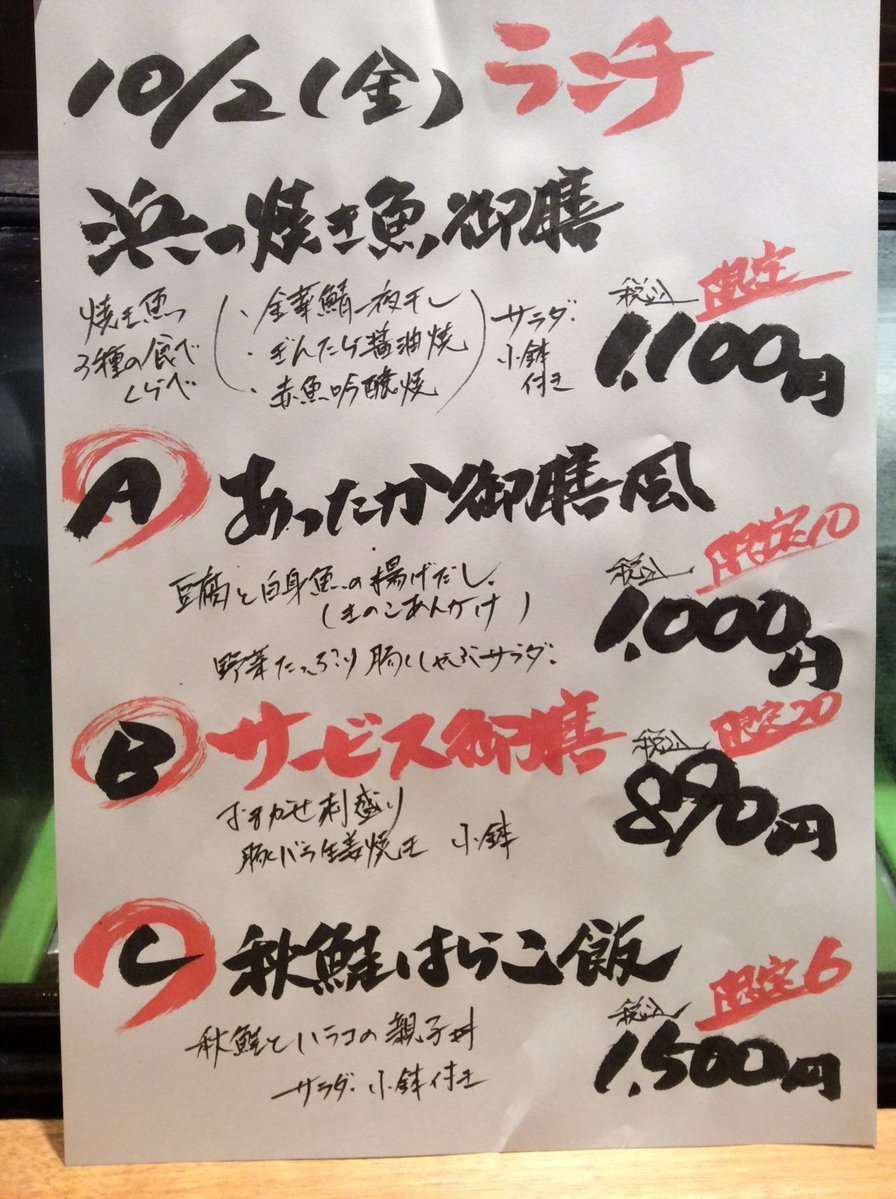 10/2(金) ランチ
浜の焼き魚御膳
限定
焼き魚
3種の食べ
くらべ
・金華鯖一夜干し
・ぎんだら醤油焼
・赤魚吟醸焼
サラダ
小鉢
付き
税込
1,100円
A あったか御膳風
限定10
豆腐と白身魚の揚げだし
(きのこあんかけ)
野菜たっぷり豚しゃぶサラダ
税込
1,000円
B サービス御膳
限定20
おまかせ刺盛り
豚バラ生姜焼き 小鉢
税込
890円
C 秋鮭はらこ飯
限定6
秋鮭とハラコの親子丼
サラダ 小鉢付き
税込
1,500円